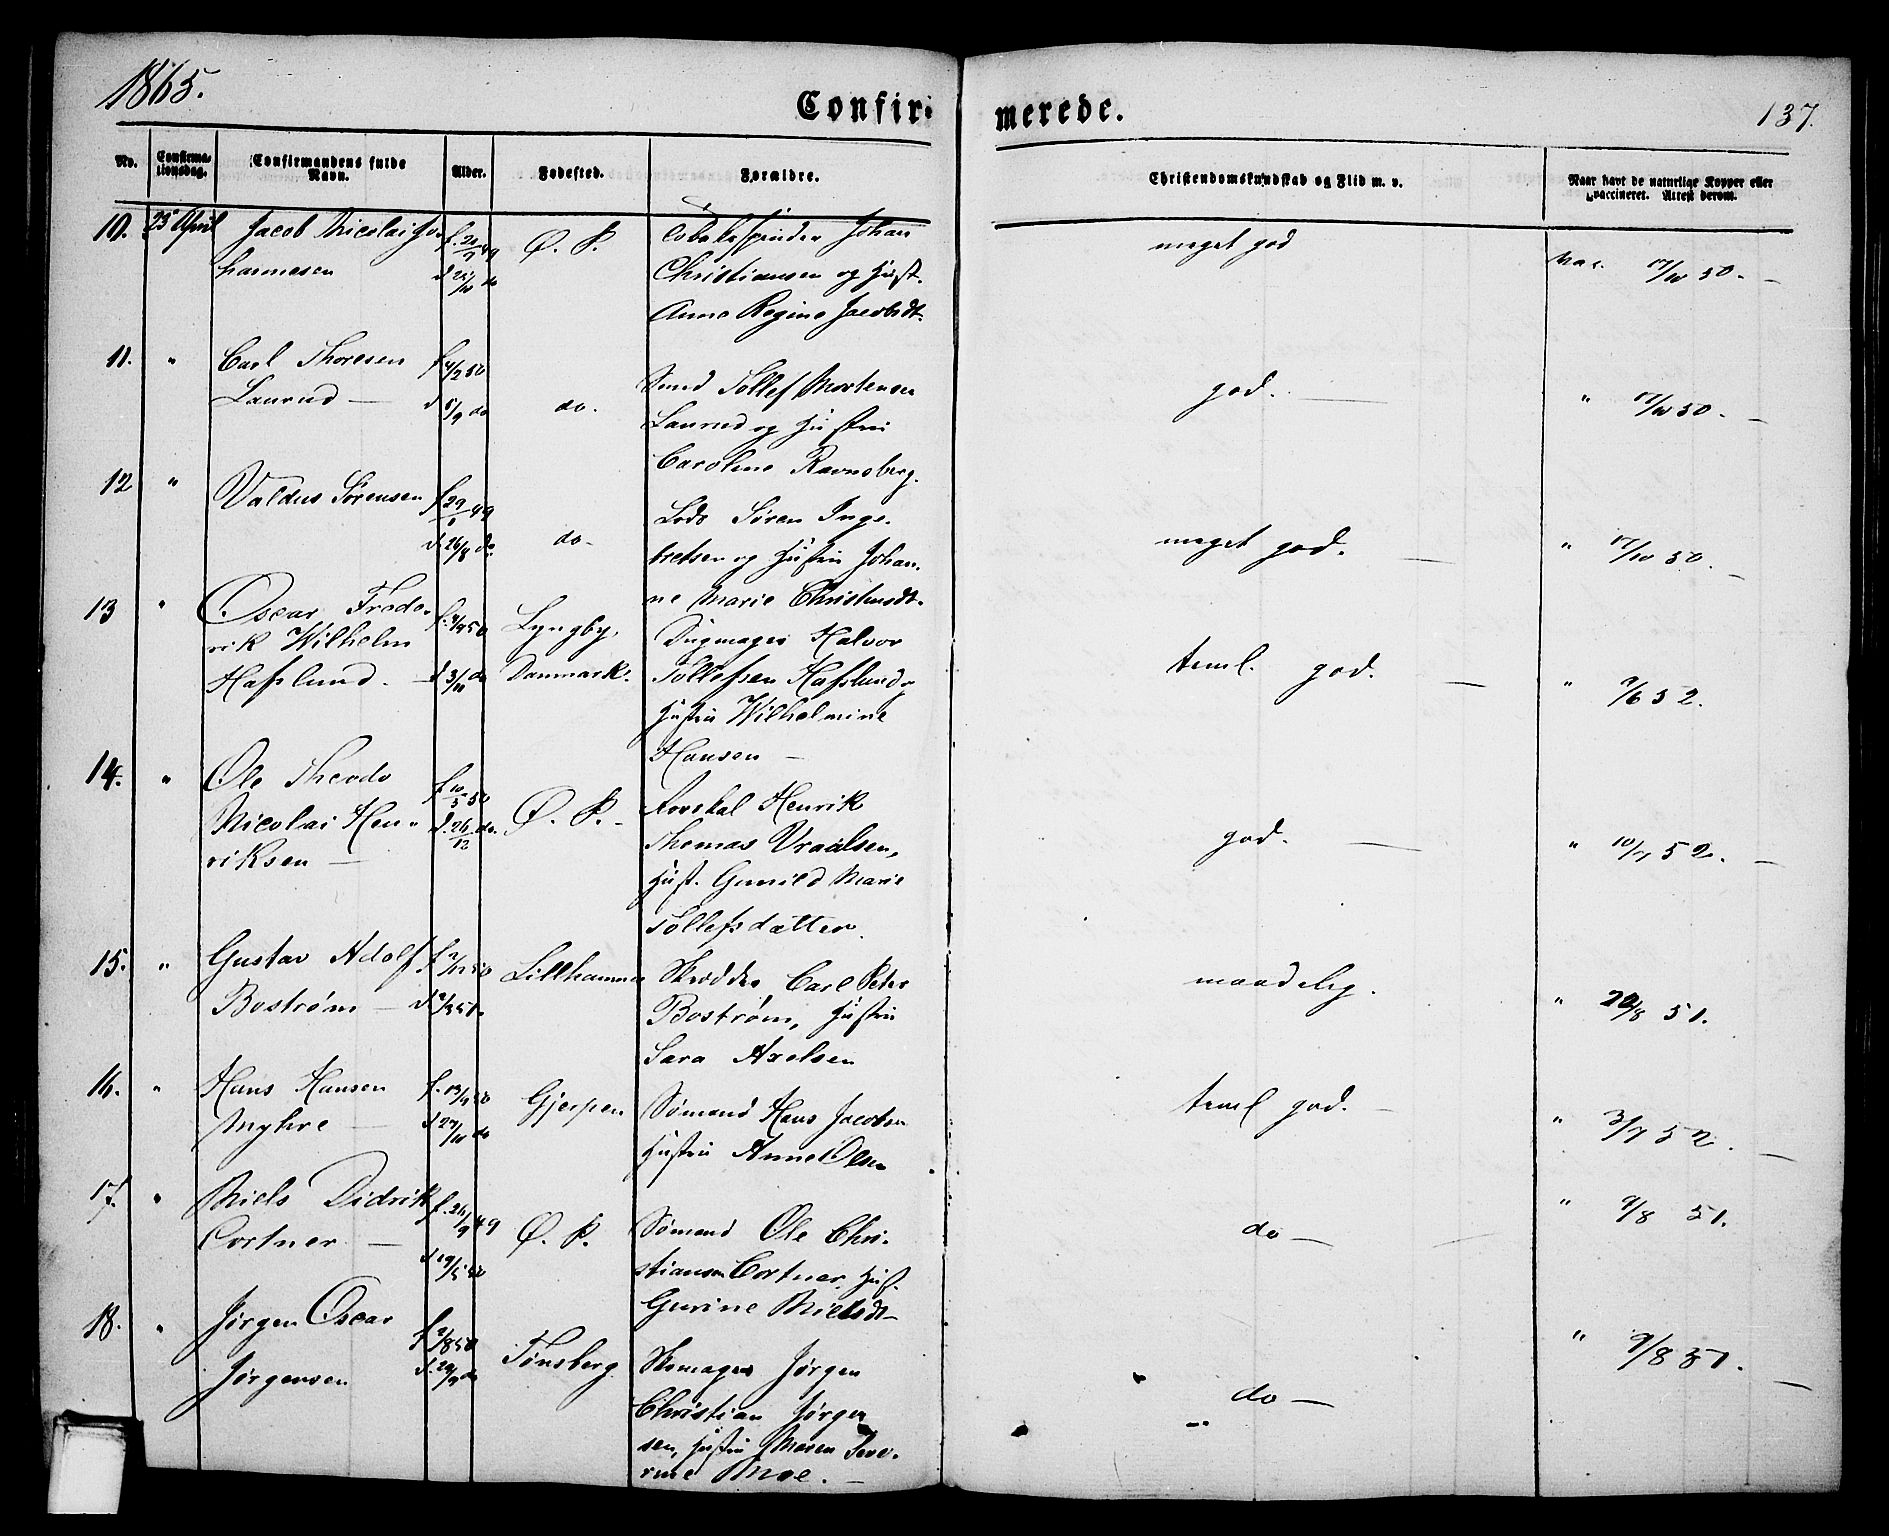 1865.
Confir-
merede.
137.
No.
Confirma-
tionsdag.
Confirmandens fulde
Navn.
Alder.
Fødested.
Forældre.
Christendomskundskab og Flid m. v.
Naar havt de naturlige Kopper eller
vaccineret. Attest derom.
10. 23 April Jacob Nicolai Jo-
hannesen
f. 20/7 49
d. 25/10 do
Ø. P.
Johan
Christiansen og Hust.
Anne Regine Jacobsdt.
meget god
Vac. 17/10 50. —
11. " Carl Thoresen
Laurud —
f 4/2 50
d 5/9 do
do.
Smed Tollef Mortensen
Laurud og Hustru
Caroline Ravneberg.
god. —
" 17/10 50. —
12 " Valdus Sørensen
f 29/ 49
d. 26/8 do.
do-
Lods Søren Inge-
bretsen og Hustru Johan-
ne Marie Christensdt.
meget god. —
" 17/10 50. —
13 " Oscar Frede-
rik Wilhelm
Hafslund. —
f. 4/9 50
d 3/11 do
Lyngby,
Danmark.
Halvor
Tollefsen Hafslund og
Hustru Wilhelmine
Hansen —
teml. god. —
" 9/6 52.
14. " Ole Theodo
Nicolai Hen-
riksen —
f 10/5 50
d. 26/12 do.
Ø. P. -
Henrik
Thomas Vraalsen,
Hust. Gunild Marie
Tollefsdatter.
god. —
" 10/7 52. —
15. " Gustav Adolf
Bostrøm —
f 2/12 50
d 2/3 51.
Lillhammer
Skrædder Carl Peter
Bostrøm, Hustru
Sara Axelsen
maadelig.
" 20/8 51.
16. " Hans Hansen
Myhre —
f. 13/9 50
d 27/10 do
Gjerpen
Sømand Hans Jacobsen
Hustru Anne Olsen
teml god. —
" 3/7 52. —
17. " Niels Didrik
Cortner —
f. 26/9 49
d 19/5 50
Ø. P.
Sømand Ole Chri-
stiansen Cortner, Hust.
Gurine Nielsdt-
do —
" 9/8 51.
18. " Jørgen Oscar
Jørgensen
f 2/8 50
d. 29/9 do
Tønsberg
Skomager Jørgen
Christian Jørgen-
sen, Hustru Maren Seve-
rine Moe. —
do —
" 9/8 51. —